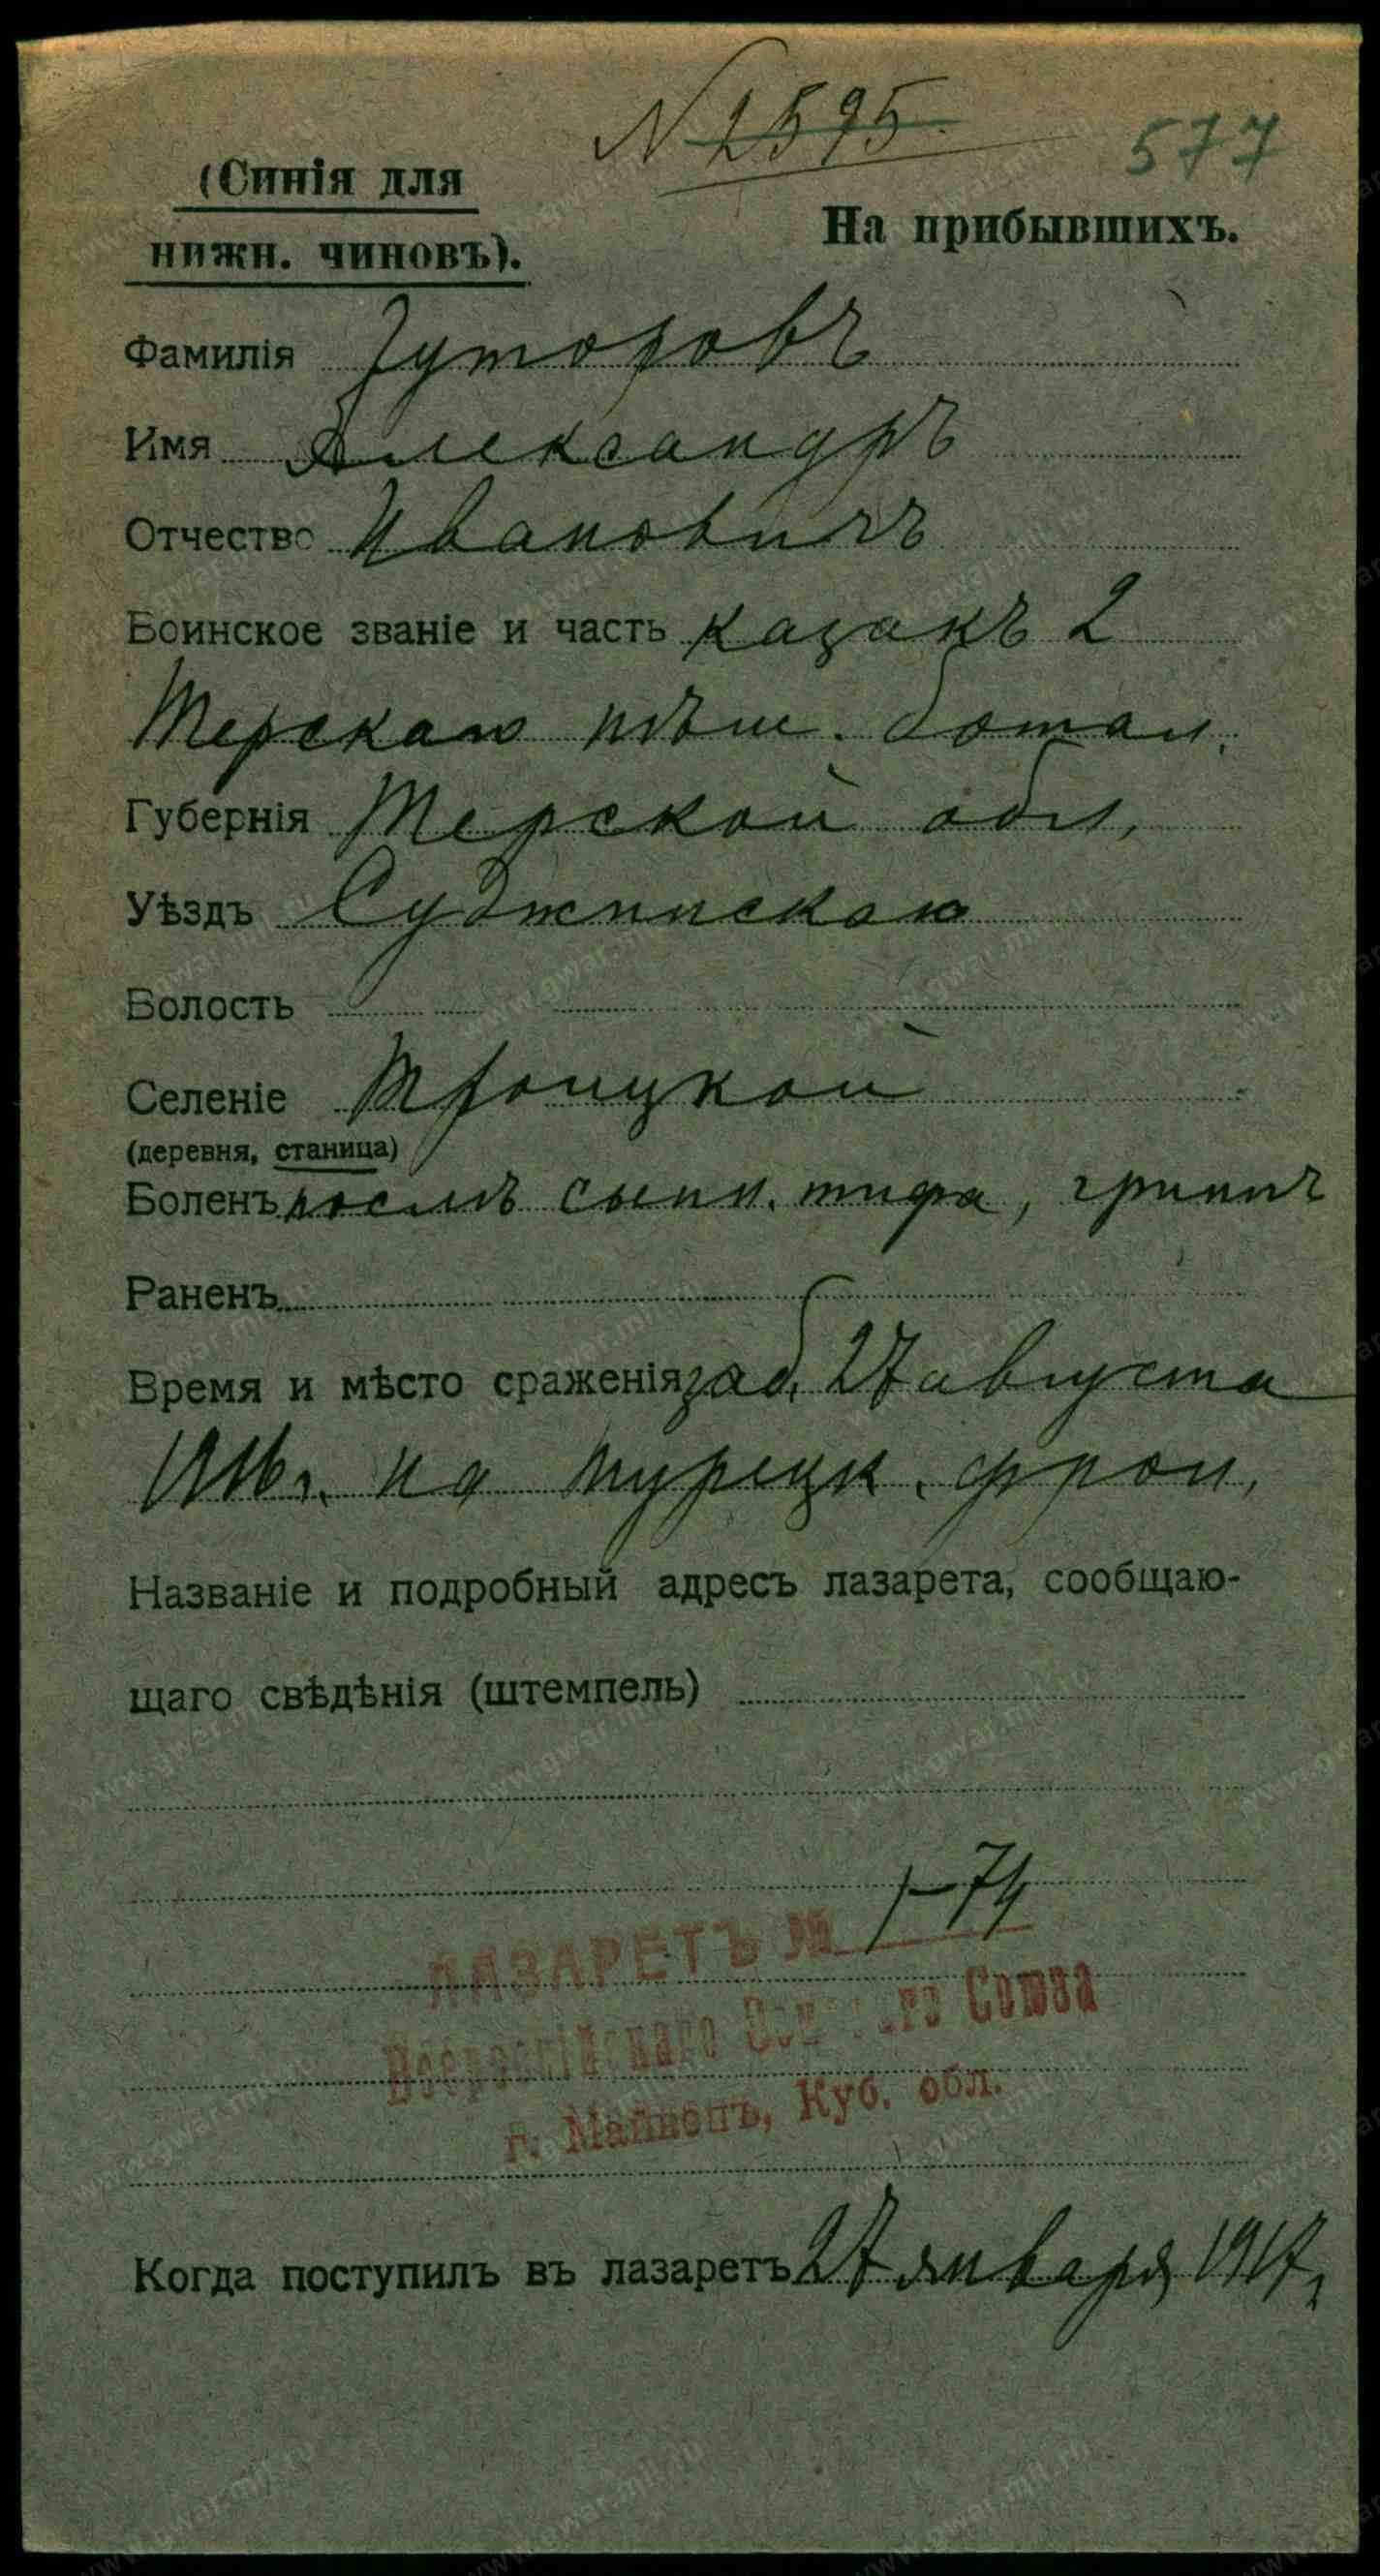 N 2595.
577
(Синія для
нижн. чиновъ).
На прибывшихъ.
Фамилія Гуторовъ
Имя Александръ
Отчество Ивановичъ
Воинское званіе и часть казакъ 2
Терскаго пѣш. батал.
Губернія Терской обл.
Уѣздъ Суджинскаго
Волость
Селеніе Троицкой
(деревня, станица)
Боленъ послѣ сыпн. тифа, гриппъ
Раненъ
Время и мѣсто сраженія заб. 27 августа
1916 г. на турецк. фрон.
Названіе и подробный адресъ лазарета, сообщаю-
щаго свѣдѣнія (штемпель)
ЛАЗАРЕТЪ № 1-74
Всероссійскаго Союза
г. Майкопъ, Куб. обл.
Когда поступилъ въ лазаретъ 27 января 1917 г.
www.gwar.mil.ru